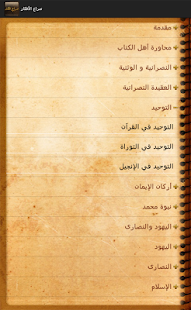 مقدمة
محاورة أهل الكتاب
النصرانية و الوثنية
العقيدة النصرانية
التوحيد
التوحيد في القرآن
التوحيد في التوراة
التوحيد في الإنجيل
أركان الإيمان
نبوة محمد
اليهود والنصارى
اليهود
النصارى
الإسلام